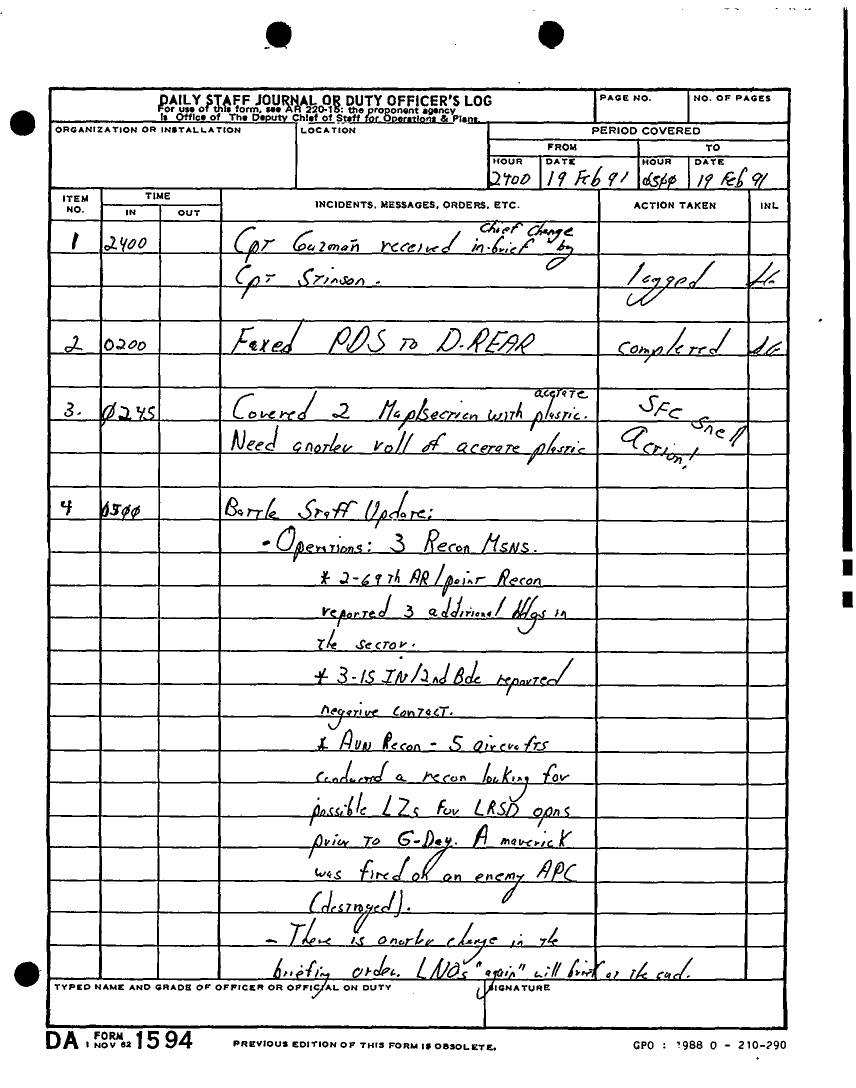 DAILY STAFF JOURNAL OR DUTY OFFICER'S LOG
For use of this form, see AR 220-15: the proponent agency
is Office of The Deputy Chief of Staff for Operations & Plans.
PAGE NO.
NO. OF PAGES
ORGANIZATION OR INSTALLATION
LOCATION
PERIOD COVERED
FROM
TO
HOUR
DATE
HOUR
DATE
2400
19 Feb 91
0500
19 Feb 91
ITEM NO.
TIME
IN
OUT
INCIDENTS, MESSAGES, ORDERS, ETC.
ACTION TAKEN
INL
1 2400 Cpt Guzman received Chief Change in-brief by
Cpt Stinson. logged
2 0200 Faxed PDS to D-REAR completed
3. 0245 Covered 2 Map/section with acetate plastic. SFC Snell
Need another roll of acetate plastic Action!
4 0500 Battle Staff Update:
- Operations: 3 Recon Msns.
* 2-69th AR/point Recon
reported 3 additional bldgs in
the sector.
* 3-15 IN/2nd Bde reported
negative contact.
* Avn Recon - 5 aircrafts
conducted a recon looking for
possible LZs for LRSD opns
prior to G-Day. A maverick
was fired on an enemy APC
(destroyed).
- There is another change in the
briefing order. LNOs "again" will brief at the end.
TYPED NAME AND GRADE OF OFFICER OR OFFICIAL ON DUTY
SIGNATURE
DA FORM 1 NOV 62 1594
PREVIOUS EDITION OF THIS FORM IS OBSOLETE.
GPO : 1988 O - 210-290